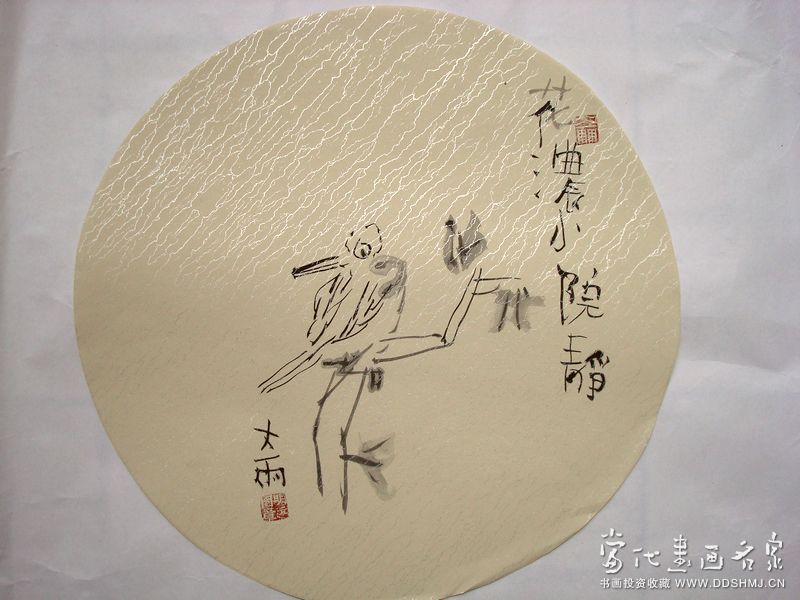 花濃小院靜
大雨
當代書画名家
书画投资收藏 WWW.DDSHMJ.CN